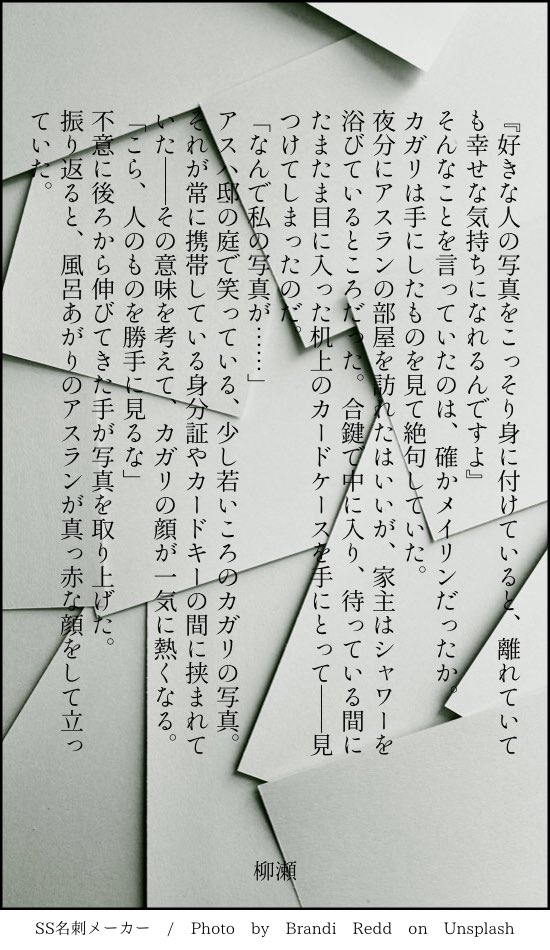 『好きな人の写真をこっそり身に付けていると、離れていて
も幸せな気持ちになれるんですよ』
そんなことを言っていたのは、確かメイリンだったか。
カガリは手にしたものを見て絶句していた。
夜分にアスランの部屋を訪れたはいいが、家主はシャワーを
浴びているところだった。合鍵で中に入り、待っている間に
たまたま目に入った机上のカードケースを手にとって――見
つけてしまったのだ。
「なんで私の写真が……」
アスハ邸の庭で笑っている、少し若いころのカガリの写真。
それが常に携帯している身分証やカードキーの間に挟まれて
いた――その意味を考えて、カガリの顔が一気に熱くなる。
「こら、人のものを勝手に見るな」
不意に後ろから伸びてきた手が写真を取り上げた。
振り返ると、風呂あがりのアスランが真っ赤な顔をして立っ
ていた。
柳瀬
SS名刺メーカー / Photo by Brandi Redd on Unsplash